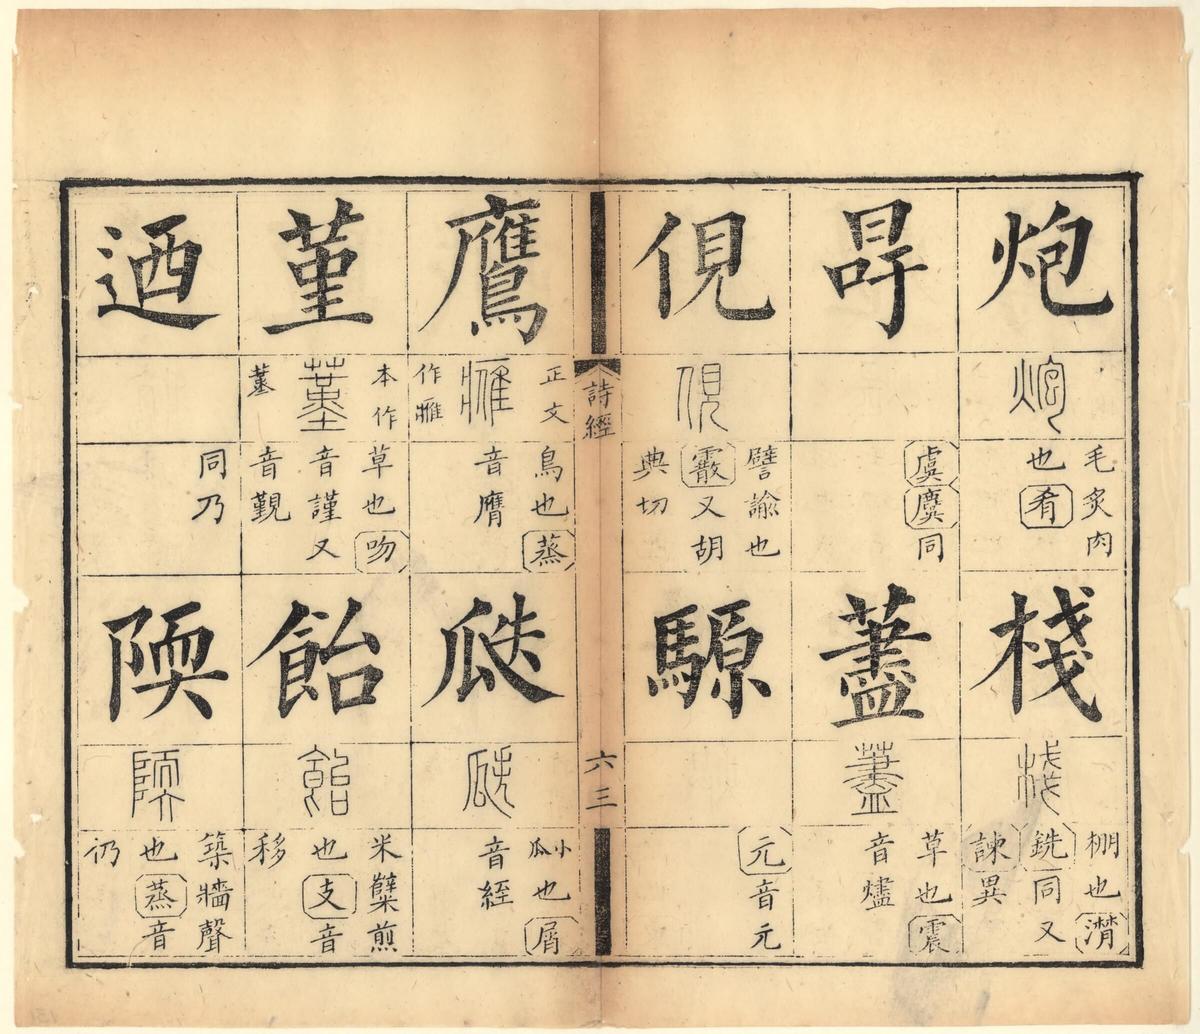 炮
炮
毛炙肉
也肴
棧
棧
棚也濳
銑同又
諫異
虞麌同
藎
藎
草也震
音燼
俔
俔
譬諭也
霰又胡
典切
騵
元音元
詩經
六三
鷹
正文
作䧹
鳥也蒸
音膺
瓞
瓞
小瓜也屑
音絰
堇
本作
草也吻
音謹又
音覲
飴
飴
米糱煎
也支音
移
迺
同乃
陾
陾
築牆聲
也蒸音
仍